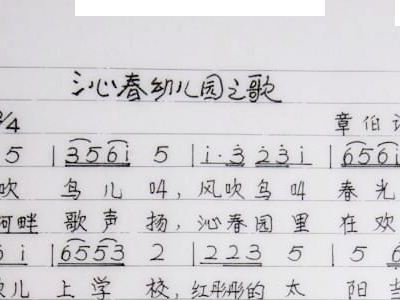 沁春幼儿园之歌
2/4 章伯
5 | 3561 5 | i·3 231 | 6561
吹 鸟儿叫, 风吹鸟叫 春光
河畔 歌声扬, 沁春园里 在欢
6 i | 6553 2 | 223 5 | 5 6
儿 上学校, 红彤彤的太 阳